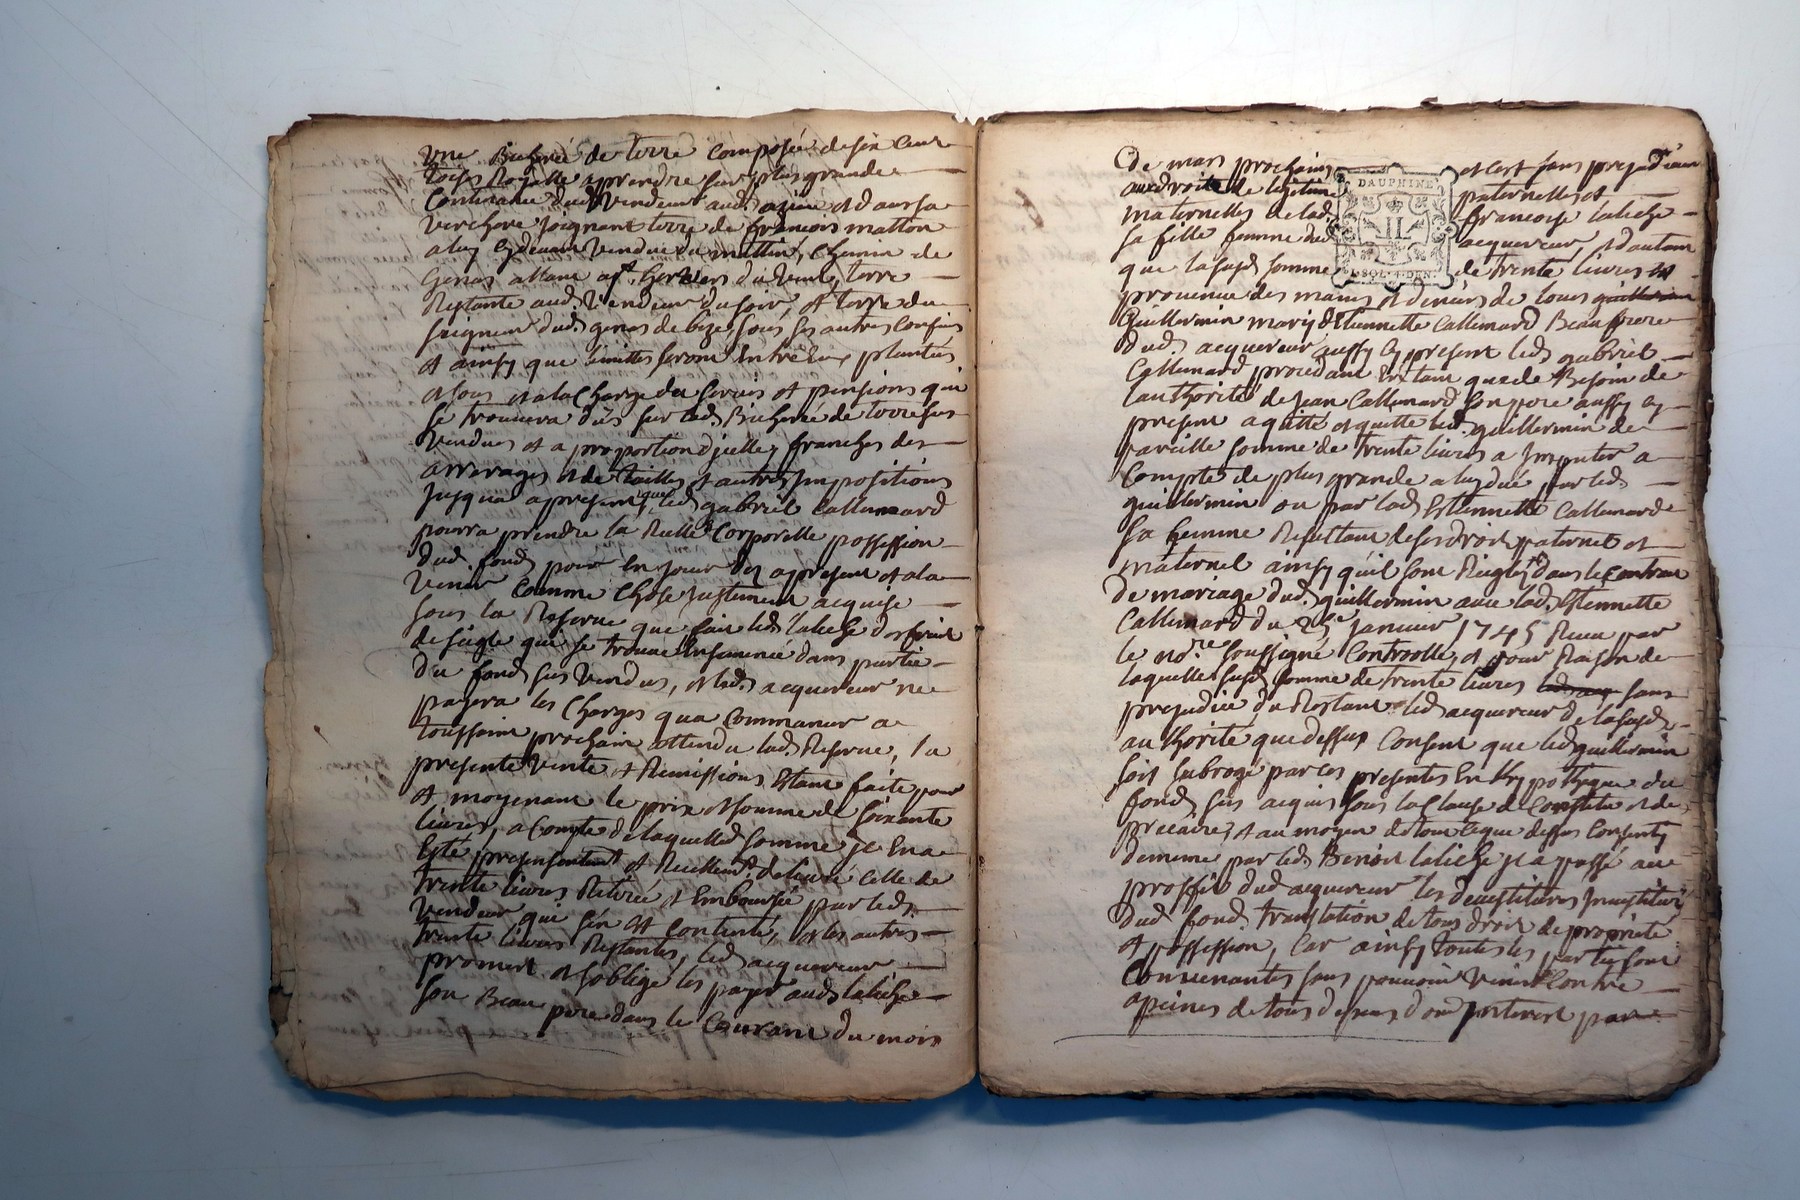 une Bicherée de terre composée de six cent
toises Royalle a prendre sur plus grande
Contenance dud. Vendeur aud. et dans sa
Verchere joignant terre de francois matton
a luy cy devant Vendue du mattin, chemin de
Genas allant a du Vent, terre
Restante aud. Vendeur du soir, et terre du
seigneur dud. genas de bize, sous ses autres confins
et ainsy que limittes seront Entr'Eux plantés
et sous et a la Charge des servis et pensions qui
se trouvera dûs sur lad. Bicherée de terre sus
Vendues et a proportion d'jcelle franches des
arrerages et de Tailles et autres Impositions
jusqua apresent, que led. gabriel Callemard
pourra prendre la Reelle Corporelle possession
dud. fond, pour En jouir dez apresent et a la
venir Comme Chose justement acquise
sous la Reserve que fait led. laliche des fruits
de seigle que se trouve Ensemencé dans partie
du fond sus Vendus, et led. acquereur ne
payera les Charges qu'a Commancer a
toussaint prochain attendu lad. Reserve, la
presente Vente et Remissions Etant faite pour
et moyenant le prix et somme de soixante
livres, a Compte de laquelle somme jl En a
Esté presentement et Reellemt. delivré celle de
trente livres Retirée et Emboursée par led.
Vendeur qui s'en et Contenté, et les autres
trente livres Restantes, led. acquereur
promet et s'oblige les payer aud. laliche
son Beau pere dans le Courant du mois
De mars prochains et c'est sans prejudicier
aux droits de legitime paternelles et
maternelles de lad. francoise laliche
sa fille femme dud. acquereur, et d'autant
que la susd. somme de trente livres est
provenue des mains et deniers de louis guillermin
Guillermin mary d'Etiennette Callemard Beaufrere
dud. acquereur aussy cy present led. gabriel
Callemard procedant En tant que de Besoin de
l'authorité de jean Callemard son pere aussy cy
present a quitté et quitte led. guillermin de
pareille somme de trente livres a Imputer a
Compte de plus grande a luy dûe par led.
guillermin ou par lad. Etiennette Callemard
sa femme Resultant de ses droits paternel et
maternel ainsy qu'il sont Reiglés dans le Contrat
De mariage dud. guillermin avec lad. Etiennette
Callemard du 25e janvier 1745 Recu par
le nore. soussigné Controollé, et pour Raison de
laquelle susd. somme de trente livres sans
prejudice du Restant led. acquereur de la susd.
authorité que dessus Consent que led. guillermin
soit subrogé par ces presentes En L'hypotheque du
fond sus acquis sous la Clause de Constitut et de
precaire, et au moyen de tout ce que dessus Consenty
de meme par led. Benoit laliche jl a passé au
proffit dud. acquereur les devestitures Investitures
dud. fond, translation de tous droit de proprieté
et possession, Car ainsy toutes les parties sont
Convenantes sans pouvoir Venir Contre
a peines de tous depens dom. interest par
DAUPHINE
I. SOL. 4. DEN.